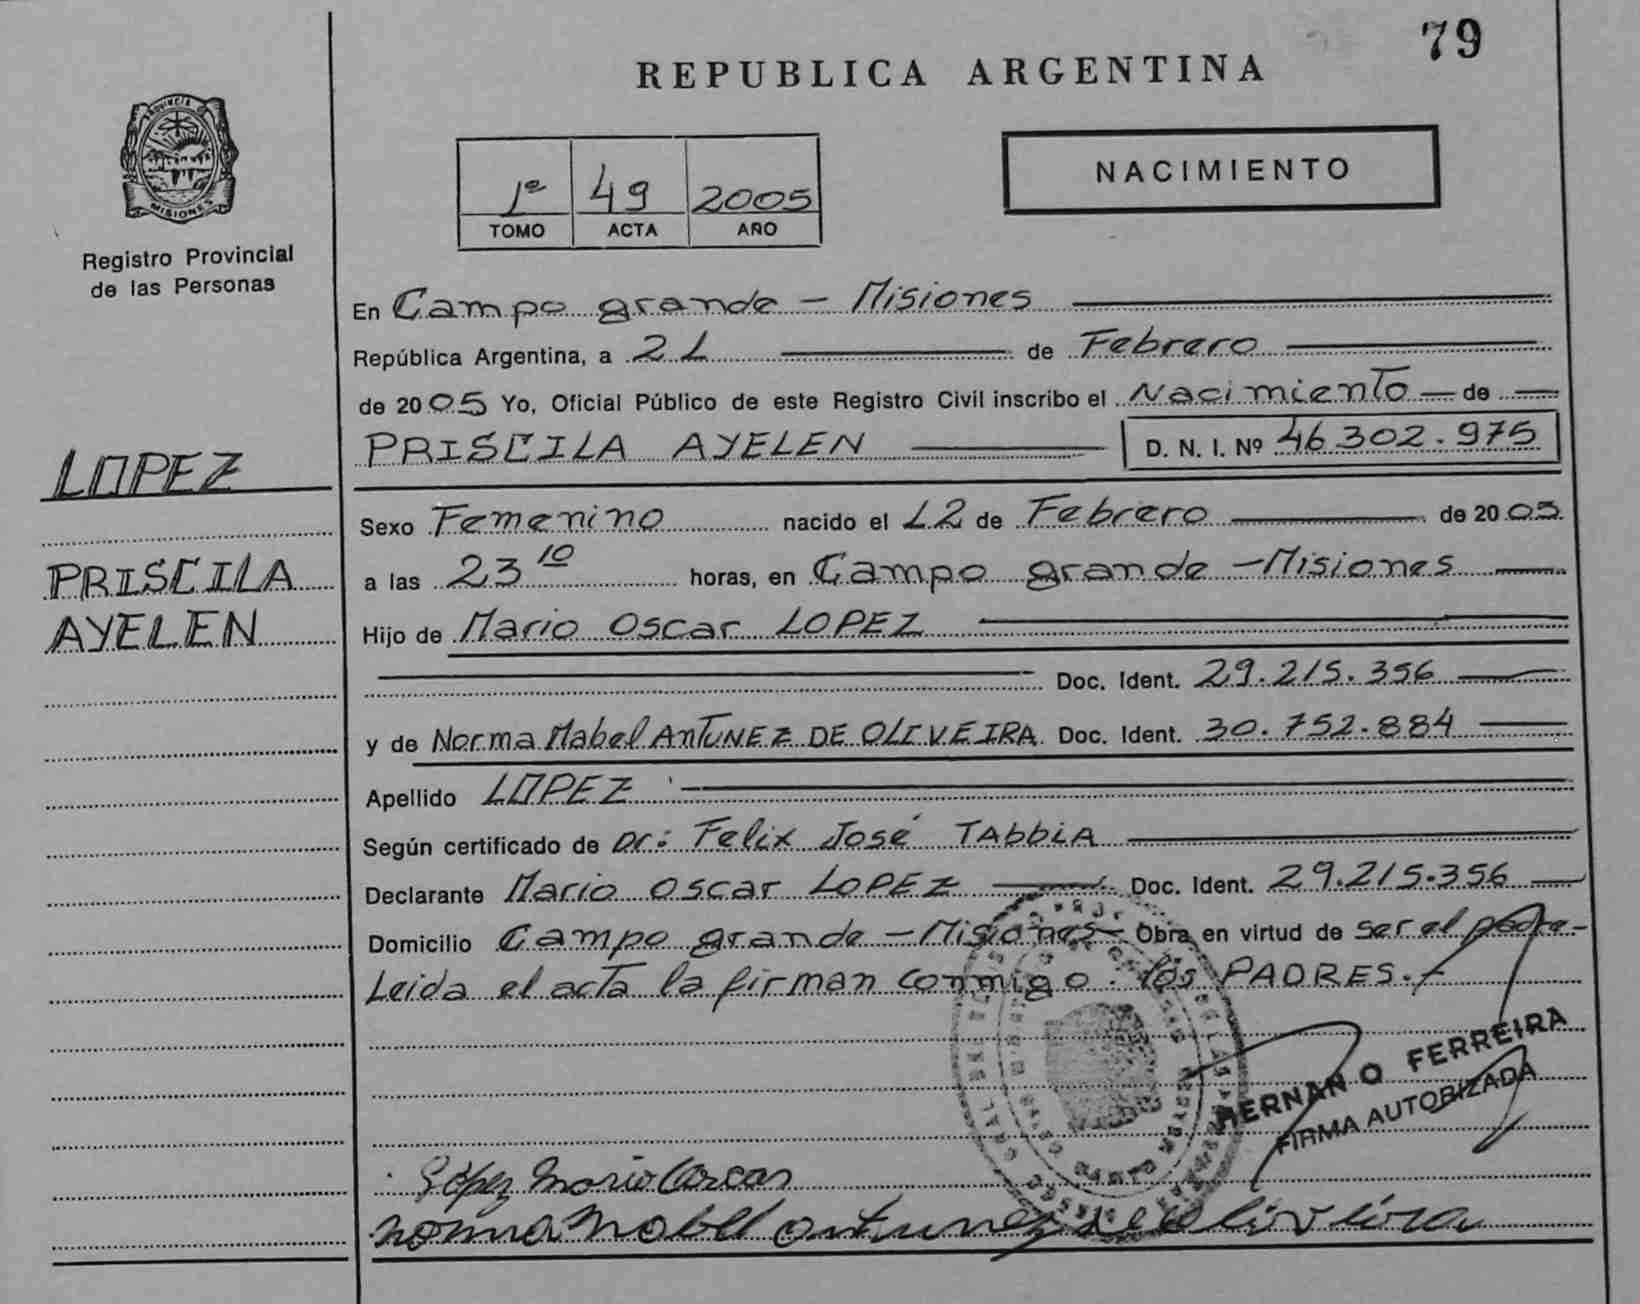 79
REPUBLICA ARGENTINA
PROVINCIA DE
MISIONES
Registro Provincial
de las Personas
1º 49 2005
TOMO ACTA AÑO
NACIMIENTO
En Campo grande - Misiones
República Argentina, a 21 de Febrero
de 2005 Yo, Oficial Público de este Registro Civil inscribo el Nacimiento de
PRISCILA AYELEN D. N. I. Nº 46.302.975
LOPEZ
Sexo Femenino nacido el 12 de Febrero de 2005
PRISCILA
AYELEN
a las 23 10 horas, en Campo grande - Misiones
Hijo de Mario Oscar LOPEZ
Doc. Ident. 29.215.356
y de Norma Mabel ANTUNEZ DE OLIVEIRA Doc. Ident. 30.752.884
Apellido LOPEZ
Según certificado de Dr: Felix José TABBIA
Declarante Mario Oscar LOPEZ Doc. Ident. 29.215.356
Domicilio Campo grande - Misiones - Obra en virtud de ser el padre-
Leida el acta la firman conmigo. los PADRES.-
O FERREIRA
FIRMA AUTORIZADA
López Mario Oscar
Norma Mabel Antunez de Oliveira